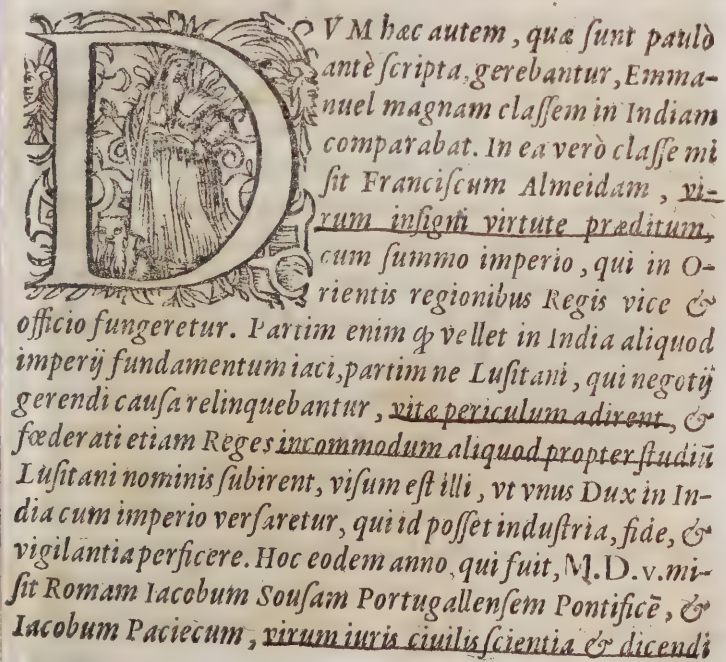 DVM hæc autem, quæ ſunt paulò
antè ſcripta, gerebantur, Emma-
nuel magnam claſſem in Indiam
comparabat. In ea verò claſſe mi
ſit Franciſcum Almeidam, vi-
rum inſigni virtute præditum,
cum ſummo imperio, qui in O-
rientis regionibus Regis vice &
officio fungeretur. Partim enim ꝙ vellet in India aliquod
imperij fundamentum iaci, partim ne Luſitani, qui negotij
gerendi cauſa relinquebantur, vitæ periculum adirent, &
fœderati etiam Reges incommodum aliquod propter ſtudiū
Luſitani nominis ſubirent, viſum eſt illi, vt vnus Dux in In-
dia cum imperio verſaretur, qui id poſſet induſtria, fide, &
vigilantia perficere. Hoc eodem anno, qui fuit, M.D.v. mi-
ſit Romam Iacobum Souſam Portugallenſem Pontificē, &
Iacobum Paciecum, virum iuris ciuilis ſcientia & dicendi